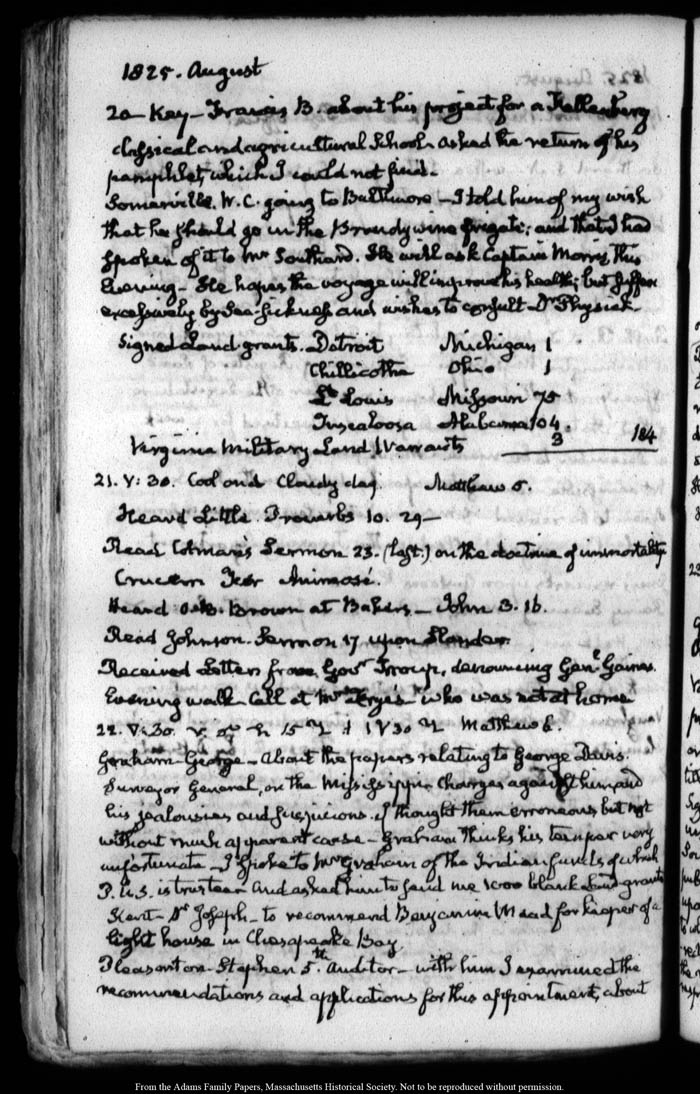 1825. August
20 – Key – Francis B. about his project for a Fellenberg
classical and agricultural School asked the return of his
pamphlet, which I could not find.
Somerville. W. C. going to Baltimore – I told him of my wish
that he should go in the Brandywine frigate; and that I had
spoken of it to Mr Southard. He will ask Captain Morris this
Evening – He hopes the voyage will improve his health; but suffers
excessively by Sea-sickness and wishes to consult Dr Physick.
Signed Land grants. Detroit Michigan 1
Chillicothe Ohio 1
St Louis Missouri 75
Tuscaloosa Alabama 104.
Virginia Military Land Warrants 3 184
21. V: 30. Cool and Cloudy day. Matthew 5.
Heard Little. Proverbs 10. 29 –
Read Colman's Sermon 23. (last.) on the doctrine of immortality.
Crucem Fer Animosé.
Heard O. B. Brown at Bakers – John 3. 16.
Read Johnson. Sermon 17 upon Slander.
Received Letters from Govr Troup, denouncing Genl Gaines.
Evening walk. Call at Mr Frye's who was not at home
22. V: 30. Matthew 6.
Graham – George – About the papers relating to George Davis.
Surveyor General, on the Mississippi. Charges against him and
his jealousies and suspicions. I thought them erroneous but not
without much apparent cause – Graham thinks his temper very
unfortunate – I spoke to Mr Graham of the Indian funds of which
P. U.S. is trustee and asked him to send me 1000 blank Land grants
Kent – Dr Joseph – to recommend Benjamin Mead for keeper of a
light house in Chesapeake Bay.
Pleasonton – Stephen 5th Auditor – with him I examined the
recommendations and applications for this appointment, about
From the Adams Family Papers, Massachusetts Historical Society. Not to be reproduced without permission.